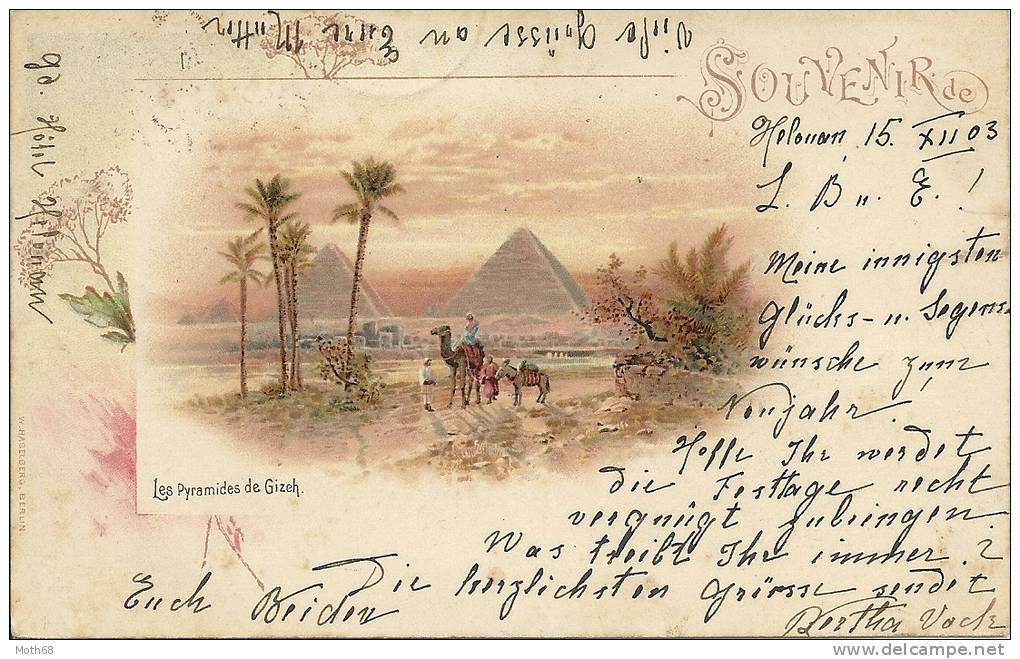 Viele Grüsse an
Euere Mutter
SOUVENIR de
Helouan, 15. XII 03
L. B u. E. !
Meine innigsten
Glücks- u. Segens-
wünsche zum
Neujahr.
Hoffe Ihr werdet
die Festtage recht
vergnügt zubringen.
Was treibt Ihr immer?
Die herzlichsten Grüsse sendet
Euch Beiden
Bertha Vock
Les Pyramides de Gizeh.
gd. Hôtel Helouan
W. HAGELBERG, BERLIN
Moth68
www.delcampe.net